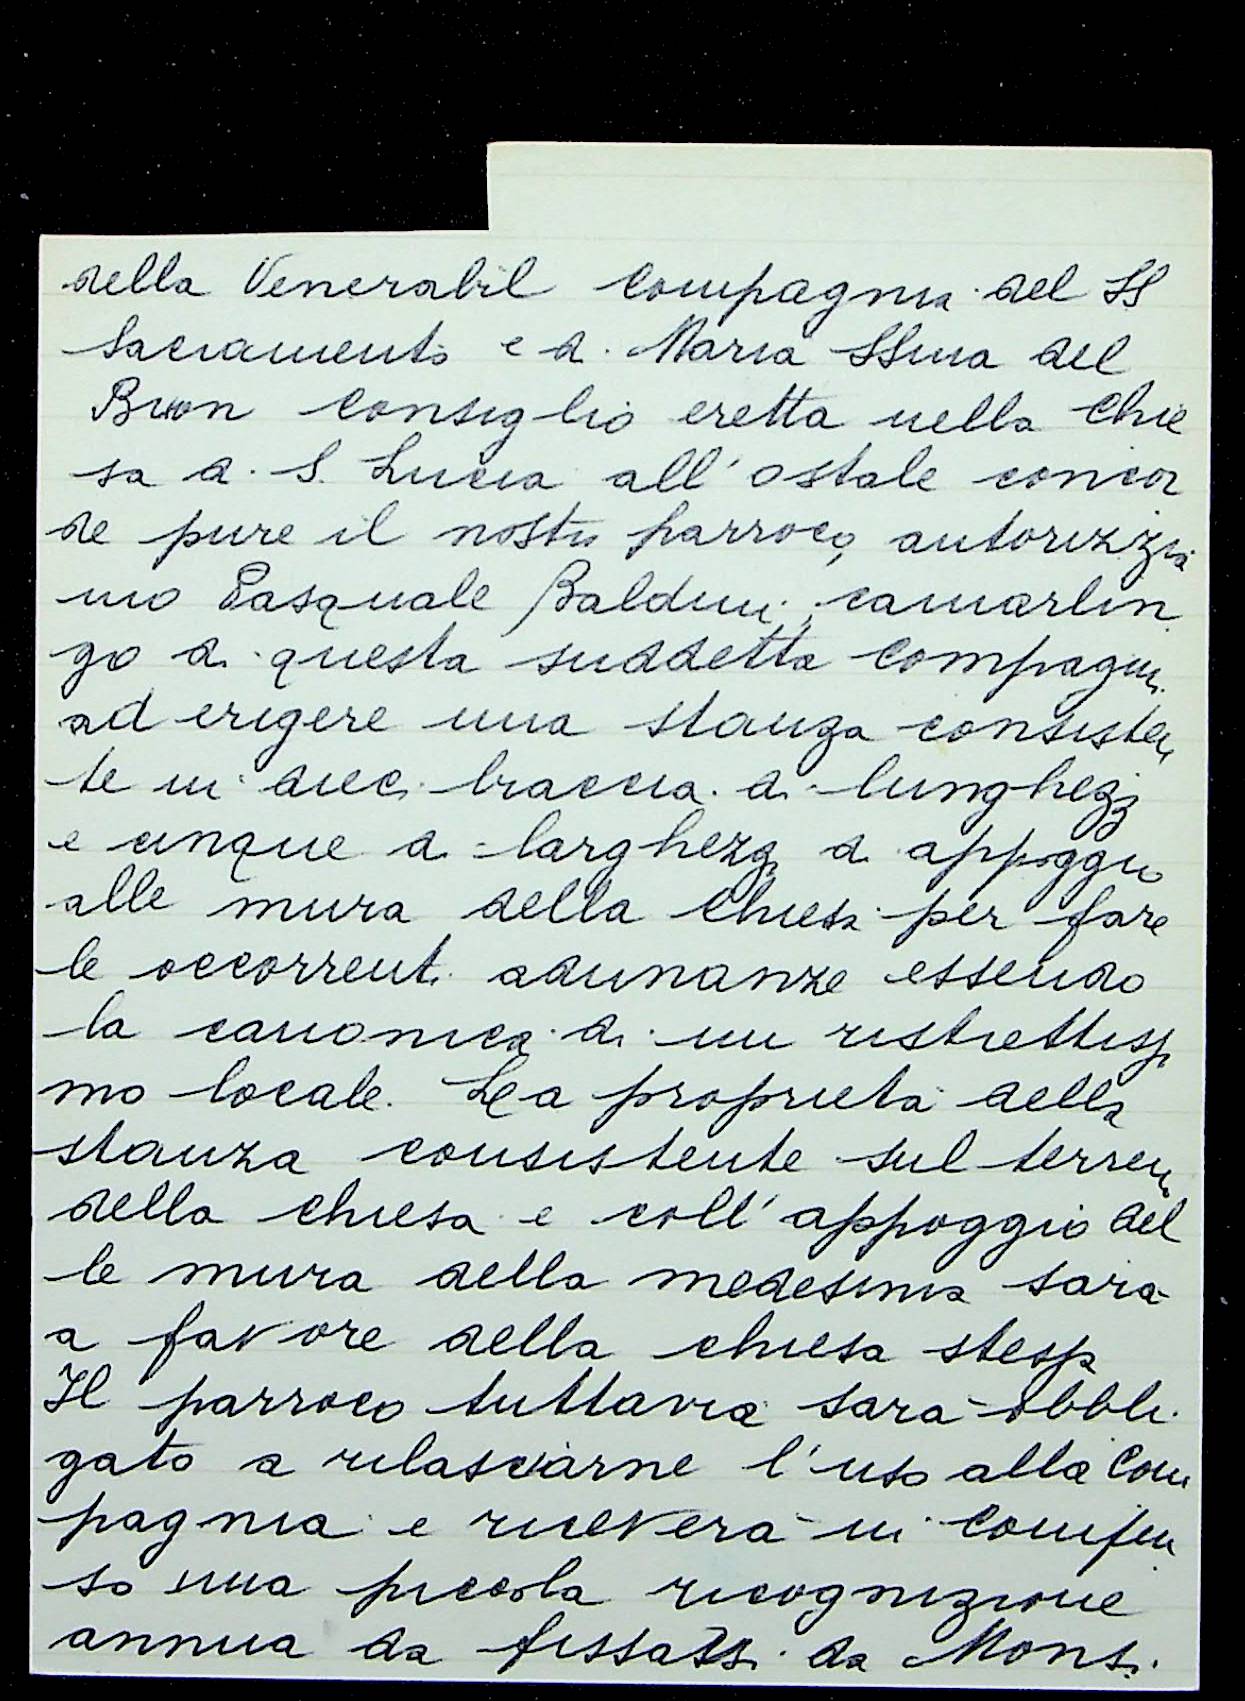 della Venerabil Compagnia del SS
Sacramento e di Maria SSma del
Buon Consiglio eretta nella Chie
sa di S. Lucia all'Ostale concor
de pure il nostro parroco, autorizzia
mo Pasquale Baldini, camarlin
go di questa suddetta Compagni
ad erigere una stanza consisten
te in dieci braccia di lunghezz
e cinque di larghezza di appoggio
alle mura della Chiesa per fare
le occorrenti adunanze essendo
la canonica di un ristrettissi
mo locale. La proprietà della
stanza consistente sul terreno
della chiesa e coll'appoggio del
le mura della medesima sarà
a favore della chiesa stessa
Il parroco tuttavia sarà obbli
gato a rilasciarne l'uso alla Com
pagnia e riceverà in compen
so una piccola ricognizione
annua da fissarsi da Mons.